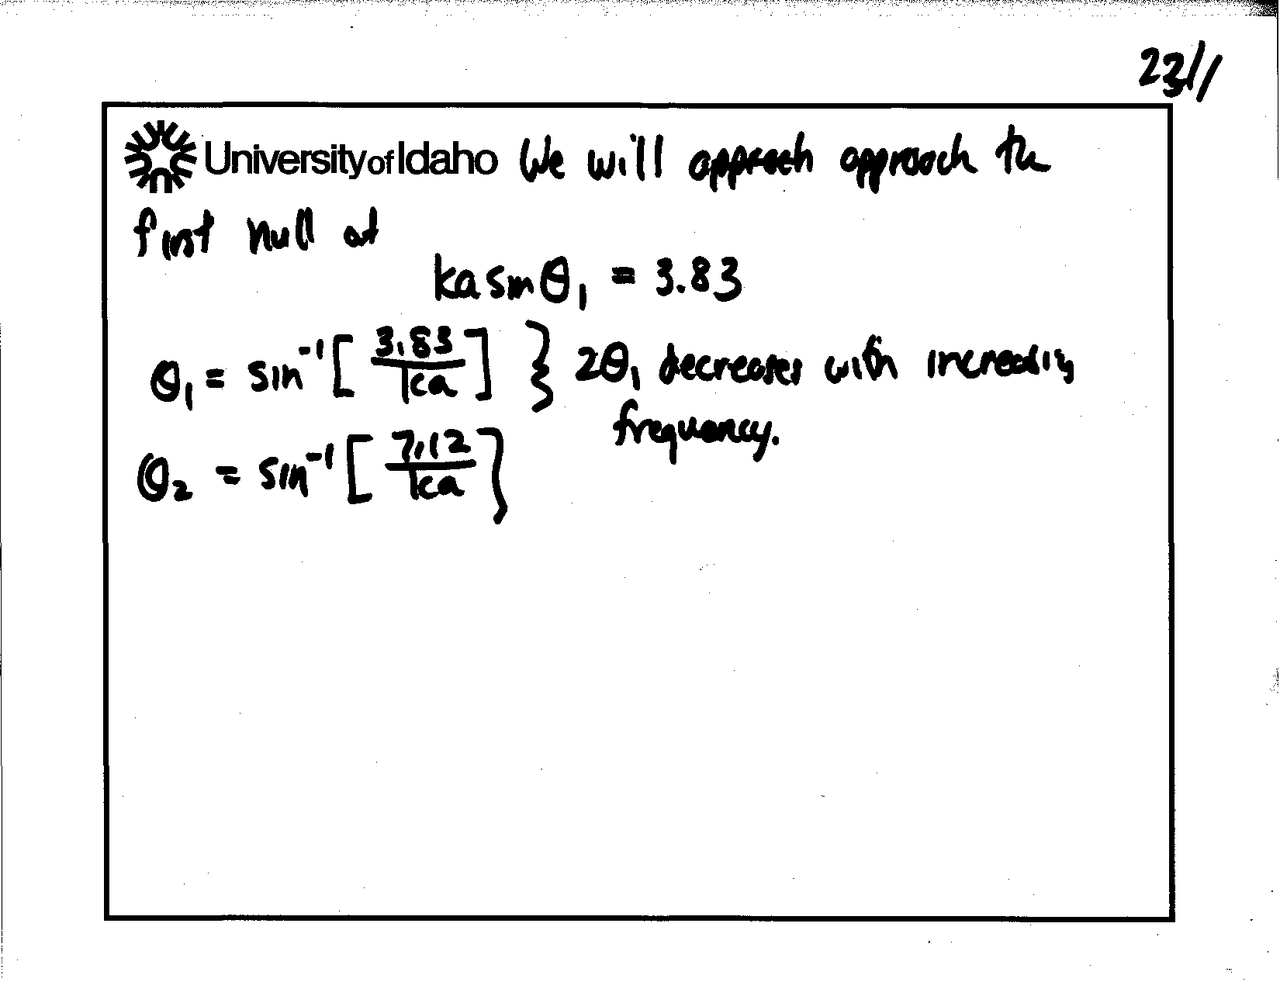 23//
University of Idaho We will approach approach the
first null at
ka sin θ₁ = 3.83
θ₁ = sin⁻¹ [ 3.83 / ka ] } 2θ₁ decreases with increasing
frequency.
θ₂ = sin⁻¹ [ 7.12 / ka ]